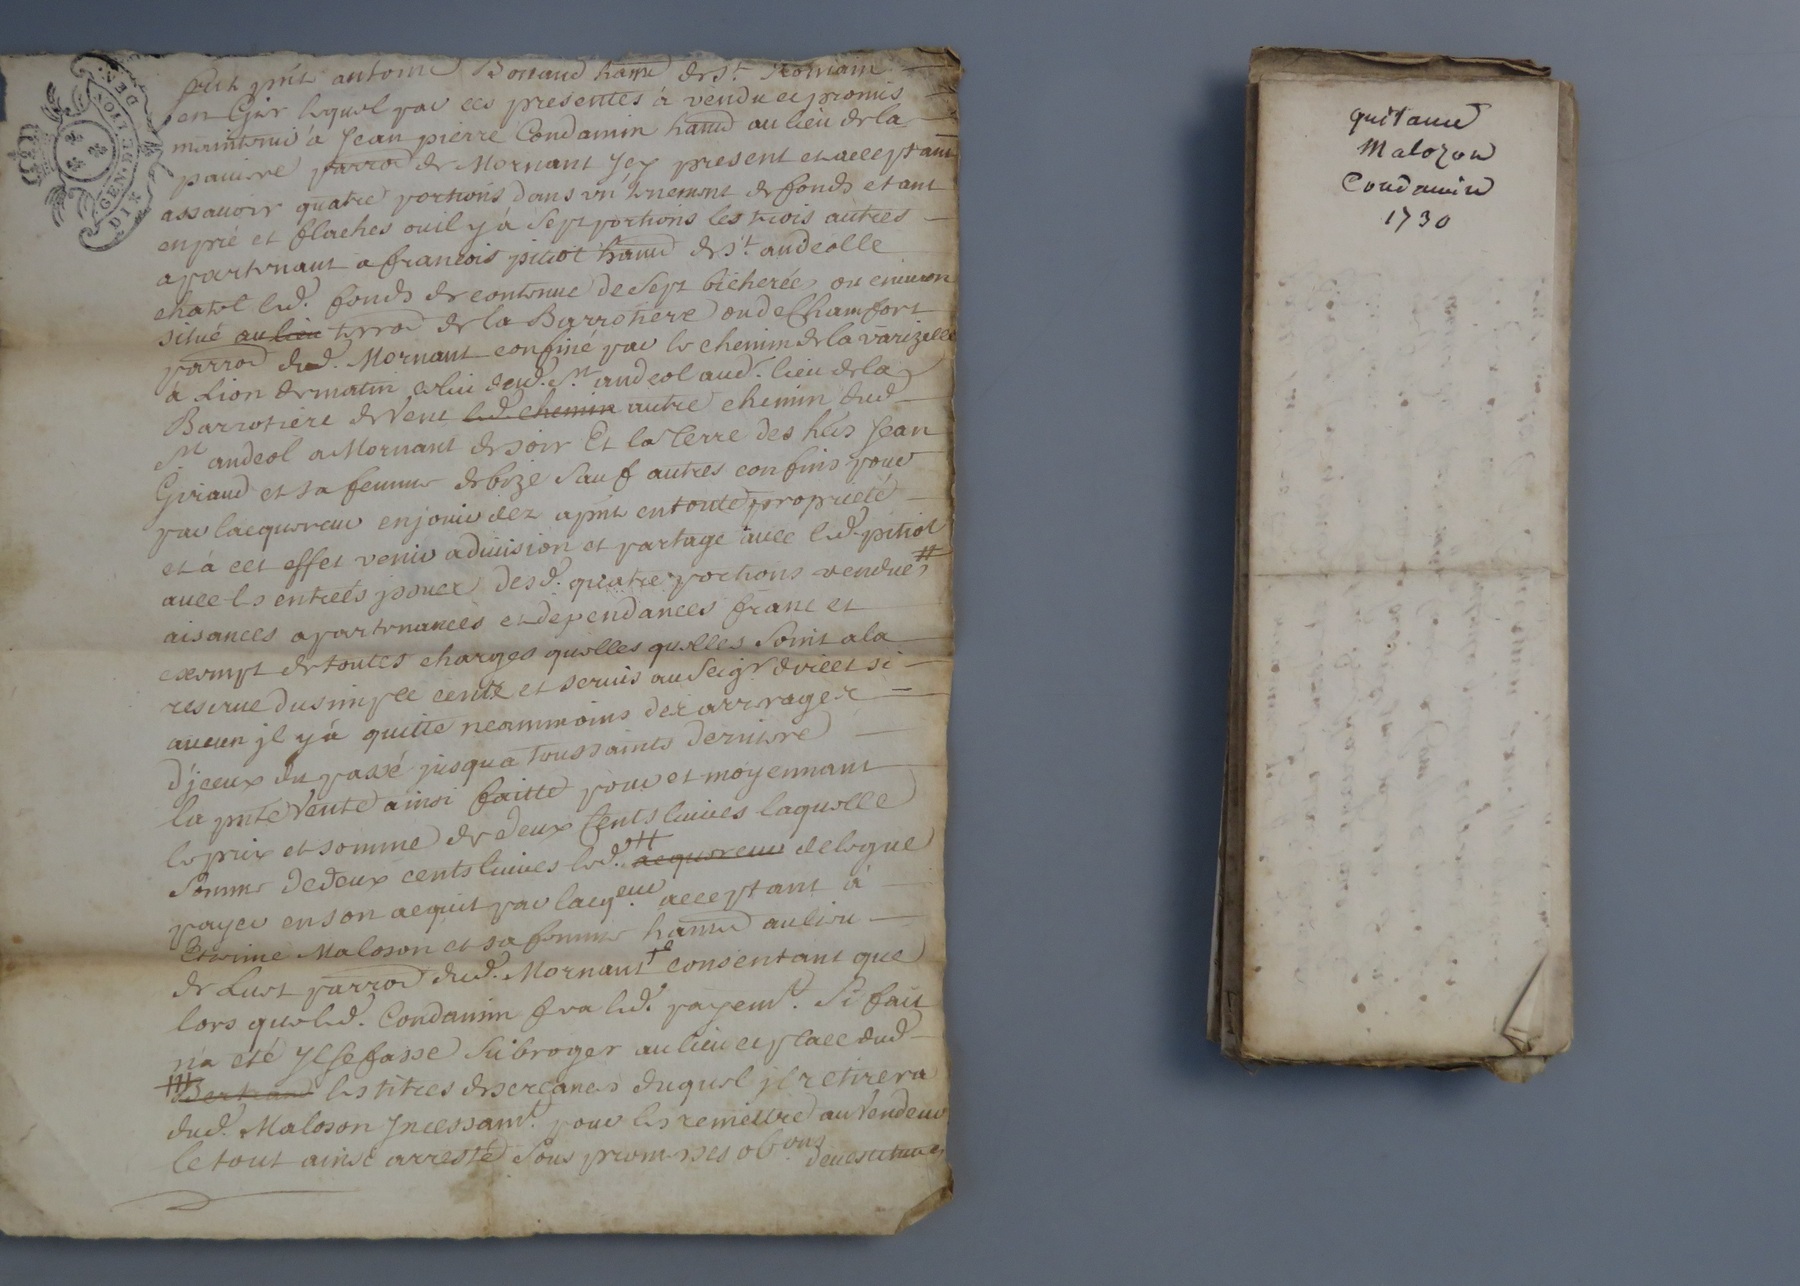 GEN. DE LION
DIX DE
fut pnt antoine Bonaud hant de St Romain
en Gier lequel par ces presentes a vendu et promis
maintenir a Jean pierre Condamin hant au lieu de la
paviere parroe de Mornant Icy present et acceptant
assavoir quatre portions dans un tenement de fonds etant
en pré et flaches ou il y a Sept portions les trois autres
apartenant a francois pitiot hant de St andeolle
chatel led. fonds de contenue de Sept bicherée ou environ
situé au lieu terroe de la Barrotiere ou de Chamfort
parroe dud. Mornant confiné par le chemin de la varizelle
à Lion de matin celui dud. St andeol aud. lieu de la
Barrotiere de vent led. chemin autre chemin dud
St andeol a Mornant de soir Et la terre des hers Jean
Giraud et sa femme de bize Sauf autres confins pour
par lacquereur en jouir dez apnt en toute proprieté
et à cet effet venir a division et partage avec led. pitiot
avec les entrées issuez desd. quatre portions vendues #
aisances apartenances et dependances franc et
exempt de toutes charges quelles quelles Soint a la
reserve du simple cente et servis au Seigr. direct si
aucun jl y à quitte neammoins dez arrerages
d'jceux du passé jusqua toussaints derniere
la pnte vente ainsi faitte pour et moyennant
le prix et somme de deux Cents livres laquelle
Somme de deux cents livres led. # acquereur delegue
payer en son acquit par lacqeur. acceptant à
Etienne Maloson et sa femme hant au lieu
de Lust parroe dud. Mornant consentant que
lors que led. Condamin fera led. payemt. Si fait
na eté Il se fasse Subroger au lieu et place dud
# Bertrand les titres de creances duquel jl retirera
dud. Maloson Incessamt. pour les remettre au Vendeur
le tout ainsi arresté Sous promesses obons
quitance
Malozon
Condamin
1730